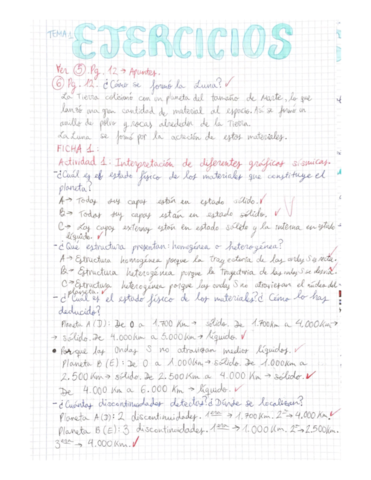 TEMA 1
EJERCICIOS
Ver ⑤ Pg. 12 → Apuntes.
⑥ Pg. 12. ¿Cómo se formó la Luna? ✓
La Tierra colisionó con un planeta del tamaño de Marte, lo que
lanzó una gran cantidad de material al espacio. Así se formó un
anillo de polvo y rocas alrededor de la Tierra.
La Luna se formó por la acreción de estos materiales.
FICHA 1:
Actividad 1: Interpretación de diferentes gráficos sísmicas.
-¿Cuál es el estado físico de los materiales que constituye el
planeta?
A → Todas sus capas están en estado sólido. ✓
B → Todas sus capas están en estado sólido.
C → Las capas externas están en estado sólido y la interna en estado
líquido. ✓
-¿Qué estructura presentan: homogénea o heterogénea?
A → Estructura homogénea porque la Trayectoria de las ondas S es recta.
B → Estructura heterogénea porque la Trayectoria de las ondas S
C → Estructura heterogénea porque las ondas S no atraviesan el núcleo del
planeta.
-¿Cuál es el estado físico de los materiales? ¿Cómo lo has
deducido?
Planeta A (D): De 0 a 1.700 Km → sólido. De 1.700 Km a 4.000 Km →
→ sólido. De 4.000 Km a 5.000 Km → líquido ✓
• Porque las ondas S no atraviesan medios líquidos. ✓
Planeta B (E): De 0 a 1.000 Km → sólido. De 1.000 Km a
2.500 Km → sólido. De 2.500 Km a 4.000 Km → sólido. ✓
De 4.000 Km a 6.000 Km → líquido. ✓
-¿Cuántas discontinuidades detectas? ¿Dónde se localizan?
Planeta A (D): 2 discontinuidades. 1era → 1.700 Km. 2ª → 4.000 Km. ✓
Planeta B (E): 3 discontinuidades. 1era → 1.000 Km. 2ª → 2.500 Km.
3era → 4.000 Km. ✓